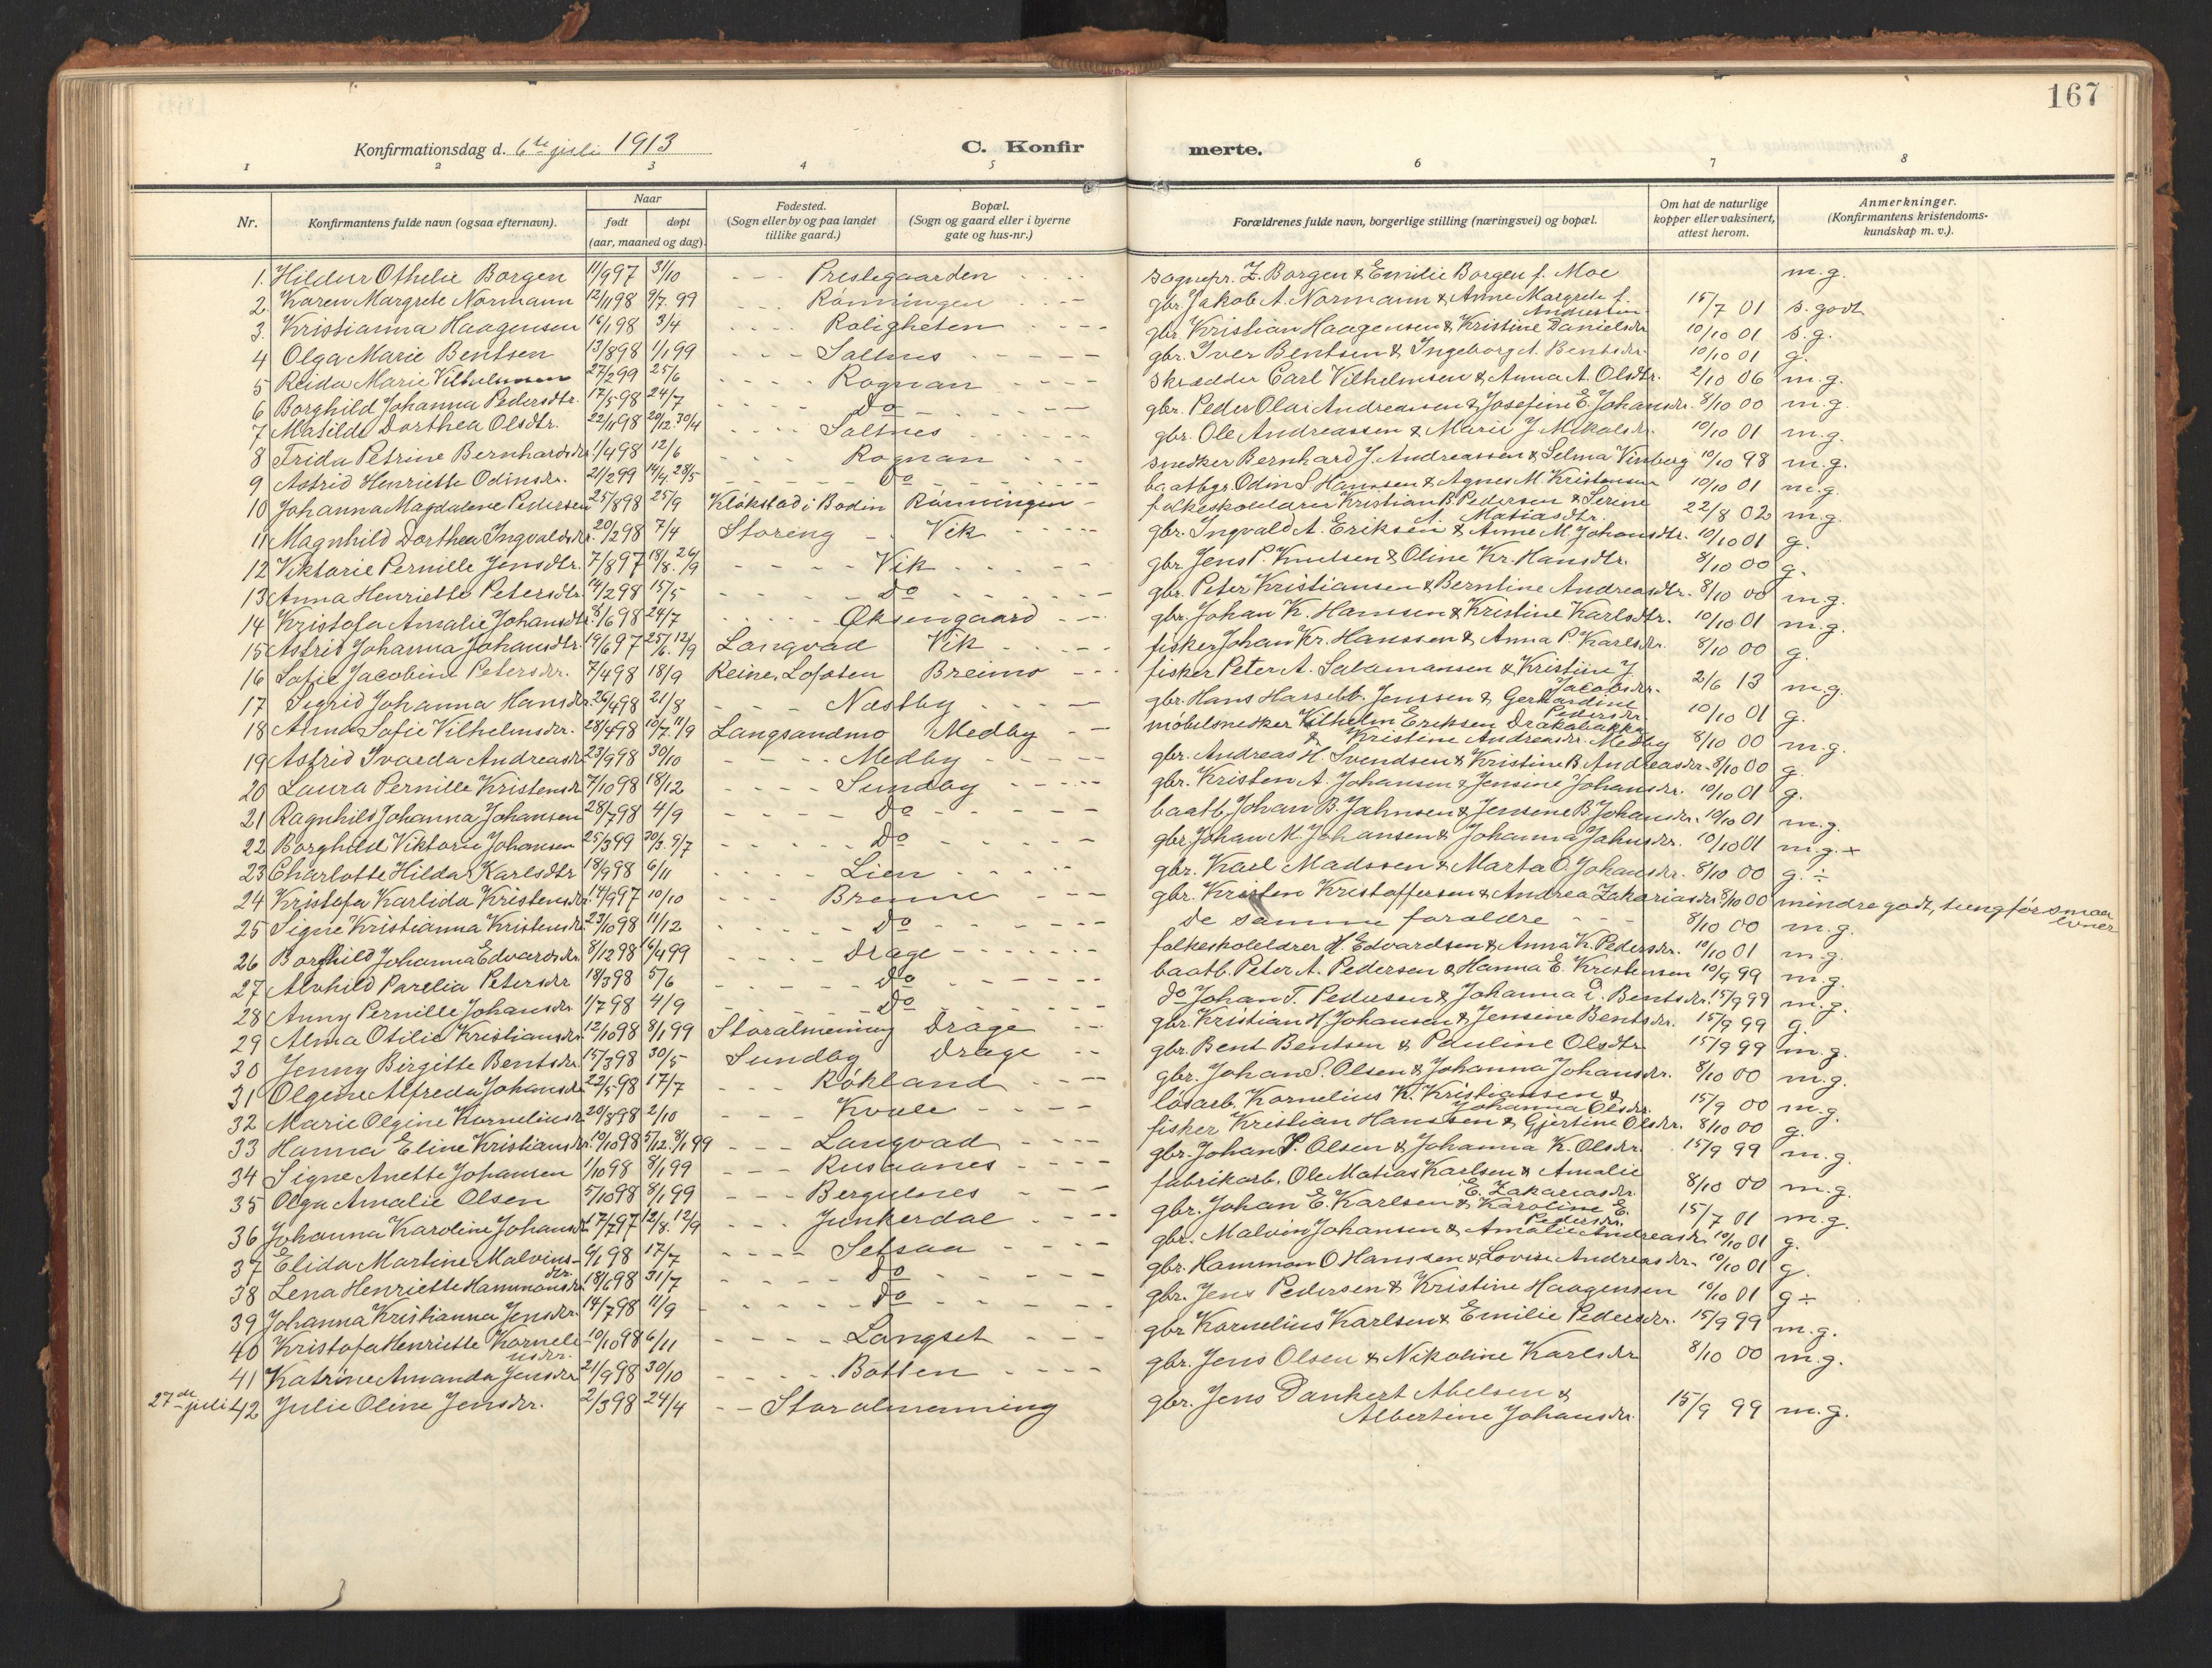 167
Konfirmationsdag d. 6te juli 1913 C. Konfirmerte.
1 2 3 4 5 6 7 8
Nr. Konfirmantens fulde navn (ogsaa efternavn). Naar født døpt (aar, maaned og dag) Fødested. (Sogn eller by og paa landet tillike gaard.) Bopæl. (Sogn og gaard eller i byerne gate og hus-nr.) Forældrenes fulde navn, borgerlige stilling (næringsvei) og bopæl. Om hat de naturlige kopper eller vaksinert, attest herom. Anmerkninger. (Konfirmantens kristendoms-kundskap m. v.).
1. Hildur Othelie Borgen 11/9 97 31/10 - - - Prestegaarden - - - sognepr. Z. Borgen & Emilie Borgen f. Moe m.g.
2. Karen Margrete Normann 12/11 98 9/7 99 - - - Rønningen - - - gbr. Jakob A. Normann & Anne Margrete f. Andersen 15/7 01 s. godt
3. Kristianna Haagensen 16/1 98 3/4 - - - Roligheten - - - gbr. Kristian Haagensen & Kristine Danielsdr. 10/10 01 s.g.
4 Olga Marie Bentsen 13/8 98 1/1 99 - - - Saltnes - - - gbr. Iver Bentsen & Ingeborg A. Bentsdr. 10/10 01 g.
5 Reida Marie Vilhelmsen 27/2 99 25/6 - - - Rognan - - - skrædder Carl Vilhelmsen & Anna A. Olsdtr. 2/10 06 m.g.
6 Borghild Johanna Pedersdtr. 17/5 98 24/7 - - - Do - - - gbr. Peder Olai Andreassen & Josefine E. Johansdr. 8/10 00 m.g.
7 Matilde Dorthea Olsdtr. 22/11 98 20/12. 30/4 - - - Saltnes - - - gbr. Ole Andreassen & Marie J. Mikalsdr. 10/10 01 m.g.
8 Frida Petrine Bernhardsdr. 1/4 98 12/6 - - - Rognan - - - snedker Bernhard J. Andreassen & Selma Vinberg 10/10 98 m.g.
9 Astrid Henriette Odinsdr. 21/2 99 14/4. 28/5 - - - Do - - - baatbgr. Odin S. Hanssen & Agnes M. Kristensen 10/10 01 m.g.
10 Johanna Magdalene Pedersen 25/8 98 25/9 Kløkstad i Bodin Rønningen - folkeskolelærer Kristian B. Pedersen & Serine A. Matiasdtr. 22/8 02 m.g.
11 Magnhild Dorthea Ingvaldsdr. 20/2 98 7/4 Storeng - Vik - - gbr. Ingvald A. Eriksen & Anne M. Johansdtr. 10/10 01 g.
12 Viktorie Pernille Jensdtr. 7/8 97 18/8. 26/9 - - - Vik - - - gbr. Jens P. Knutsen & Oline Kr. Hansdtr. 8/10 00 g.
13 Anna Henriette Petersdtr. 14/2 98 15/5 - - - Do - - - gbr. Peter Kristiansen & Berntine Andreasdtr. 8/10 00 m.g.
14 Kristofa Amalie Johansdtr. 8/6 98 24/7 - - - Øksengaard - - - gbr. Johan K. Hanssen & Kristine Karlsdtr. 10/10 01 m.g.
15 Astrid Johanna Johansdtr. 19/6 97 25/6. 12/9 Langvad Vik - - - fisker Johan Kr. Hanssen & Anna P. Karlsdr. 8/10 00 g.
16 Sofie Jacobine Petersdr. 7/4 98 18/9 Reine, Lofoten Breimo - - - fisker Peter A. Salamansen & Kristine J. Jacobsdr. 2/6 13 m.g.
17 Sigrid Johanna Hansdr. 26/4 98 21/8 - - - Næstby - - - gbr. Hans Hasselb. Jenssen & Gerhardine Pedersdr. 10/10 01 g.
18 Anna Sofie Vilhelmsdr. 28/4 98 10/7. 11/9 Langsandmo Medby - - møbelsnedker Vilhelm Eriksen Drakabakke & Kristine Andreasdr. Medby 8/10 00 m.g.
19 Astrid Ivarda Andreasdr. 23/9 98 30/10 - - - Medby - - - gbr. Andreas H. Svendsen & Kristine B. Andreasdr. 8/10 00 g.
20 Laura Pernille Kristensdr. 7/10 98 18/12 - - - Sundby - - - gbr. Kristen A. Johansen & Jensine Johansdr. 10/10 01 g.
21 Ragnhild Johanna Johansen 28/7 98 4/9 - - - Do - - - baatb. Johan B. Jahnsen & Jensine B. Johansdr. 10/10 01 m.g.
22 Borghild Viktoria Johansen 25/3 99 30/3. 9/7 - - - Do - - - gbr. Johan M. Johansen & Johanna Jahnsdr. 10/10 01 m.g. +
23 Charlotte Hilda Karlsdtr 18/9 98 6/11 - - - Lien - - - gbr. Karl Madssen & Marta O. Johansdr. 8/10 00 g. ÷
24 Kristofa Karlida Kristensdr. 14/9 97 10/10 - - - Brenne - - - gbr. Kristen Kristoffersen & Andrea Zakariasdr. 8/10 00 mindre godt, tungfør smaa evner
25 Signe Kristianna Kristensdr. 23/10 98 11/12 - - - Do - - - de samme forældre - - - 8/10 00 m.g.
26 Borghild Johanna Edvardsdr. 8/12 98 16/4 99 - - - Drage - - - folkeskolelærer H. Edvardsen & Anna K. Pedersdr. 10/10 01 m.g.
27 Alvhild Parelia Petersdr 18/3 98 5/6 - - - Do - - - baatb. Peter A. Pedersen & Hanna E. Kristensen 10/9 99 m.g.
28 Anny Pernille Johansdr. 1/7 98 4/9 - - - Do - - - do Johan T. Pedersen & Johanna L. Bentsdr. 15/9 99 m.g.
29 Alma Otilie Kristiansdr. 12/10 98 8/1 99 Storalmening Drage - - - gbr. Kristian H. Johansen & Jensine Bentsdr. 15/9 99 g.
30 Jenny Birgitte Bentsdr. 15/3 98 30/5 Sundby Drage - - gbr. Bent Bentsen & Pauline Olsdtr 15/9 99 m.g.
31 Olgene Alfreda Johansdr. 22/5 98 17/7 - - - Røkland - - - gbr. Johan S. Olsen & Johanna Johansdr. 8/10 00 m.g.
32 Marie Olgine Korneliusdr. 20/8 98 2/10 - - - Kvæle - - - løsarb. Kornelius K. Kristiansen & Johanna Olsdr. 15/9 00 m.g.
33 Hanna Eline Kristiansdr. 10/10 98 5/12. 8/1 99 - - - Langvad - - - fisker Kristian Hanssen & Gjertine Olsdr. 8/10 00 g.
34 Signe Anette Johansen 1/10 98 8/1 99 - - - Rusaanes - - - gbr. Johan P. Olsen & Johanna K. Olsdr. 15/9 99 m.g.
35 Olga Amalie Olsen 5/10 98 8/1 99 - - - Bergulnes - - - fabrikarb. Ole Matias Karlsen & Amalie E. Zakariasdr. 8/10 00 m.g.
36 Johanna Karoline Johansdr. 17/7 97 12/8. 12/9 - - - Junkerdal - - - gbr. Johan E. Karlsen & Karoline E. Pedersdr. 15/7 01 m.g.
37 Elida Martine Malvins-dtr. 6/1 98 17/7 - - - Setsaa - - - gbr. Malvin Johansen & Amalie Andreasdr. 10/10 01 g.
38 Lena Henriette Hammonsdr. 18/6 98 31/7 - - - Do - - - gbr. Hammon O. Hanssen & Lovise Andreasdr. 10/10 01 g.
39 Johanna Kristianna Jensdr. 14/7 98 11/9 - - - Do - - - gbr. Jens Pedersen & Kristine Haagensen 10/10 01 g ÷
40 Kristofa Henriette Korneli-usdr. 10/10 98 6/11 - - - Langset - - - gbr Kornelius Karlsen & Emilie Pedersdr. 15/9 99 m.g.
41 Katrine Amanda Jensdr. 21/9 98 30/10 - - - Botten - - - gbr. Jens Olsen & Nikoline Karlsdr 8/10 00 m.g.
27de juli 42 Julie Oline Jensdr. 2/3 98 24/4 - - Storalmenning gbr. Jens Dankert Abelsen & Albertine Johansdr. 15/9 99 m.g.